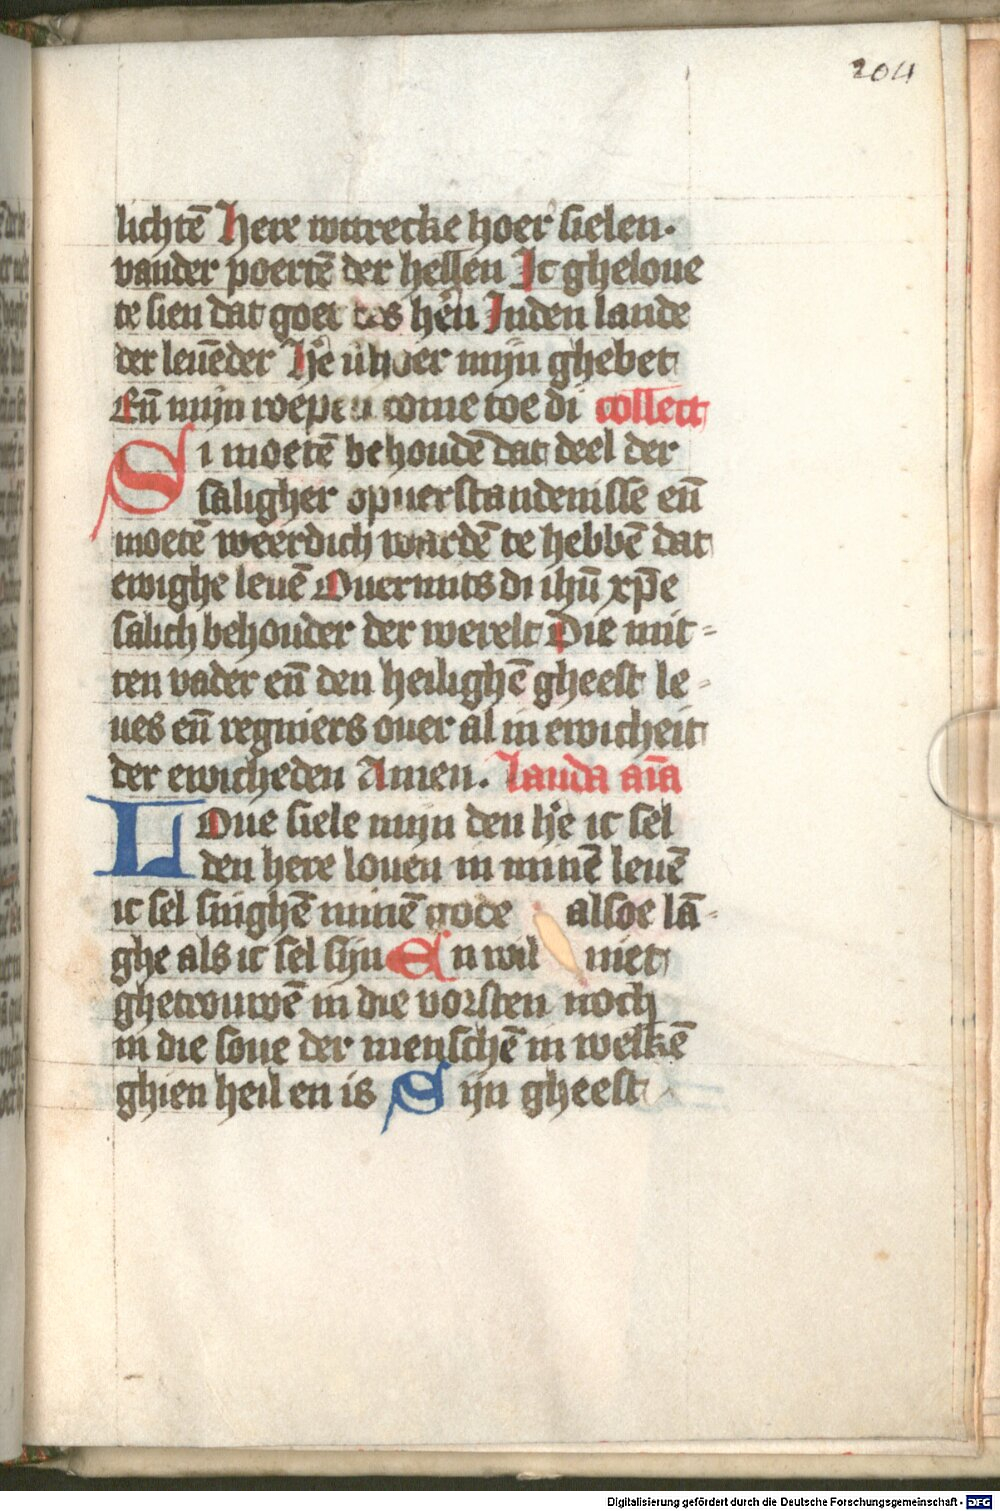 204
lichtē Here wtrecke hoer sielen.
vander poertē der hellen Ic gheloue
te sien dat goet des hēn Inden lande
der leuēder Hē verhoer mijn ghebet
Eñ mijn roepen come toe di collect
Si moetē behoudē dat deel der
saligher opuerstandenisse eñ
moetē weerdich wardē te hebbē dat
ewighe leuē Ouermits di ihū xp̄e
salich behouder der werelt Die mit-
ten vader eñ den heilighē gheest le-
ues eñ regniers ouer al in ewicheit
der ewicheden Amen. Lauda aīa
LOue siele mijn den hē ic sel
den here louen in minē leuē
ic sel singhē minē gode alsoe lā-
ghe als ic sel sijn En wil niet
ghetrouwē in die vorsten noch
in die sone der menschē in welkē
ghien heil en is Sijn gheest
Digitalisierung gefördert durch die Deutsche Forschungsgemeinschaft - DFG